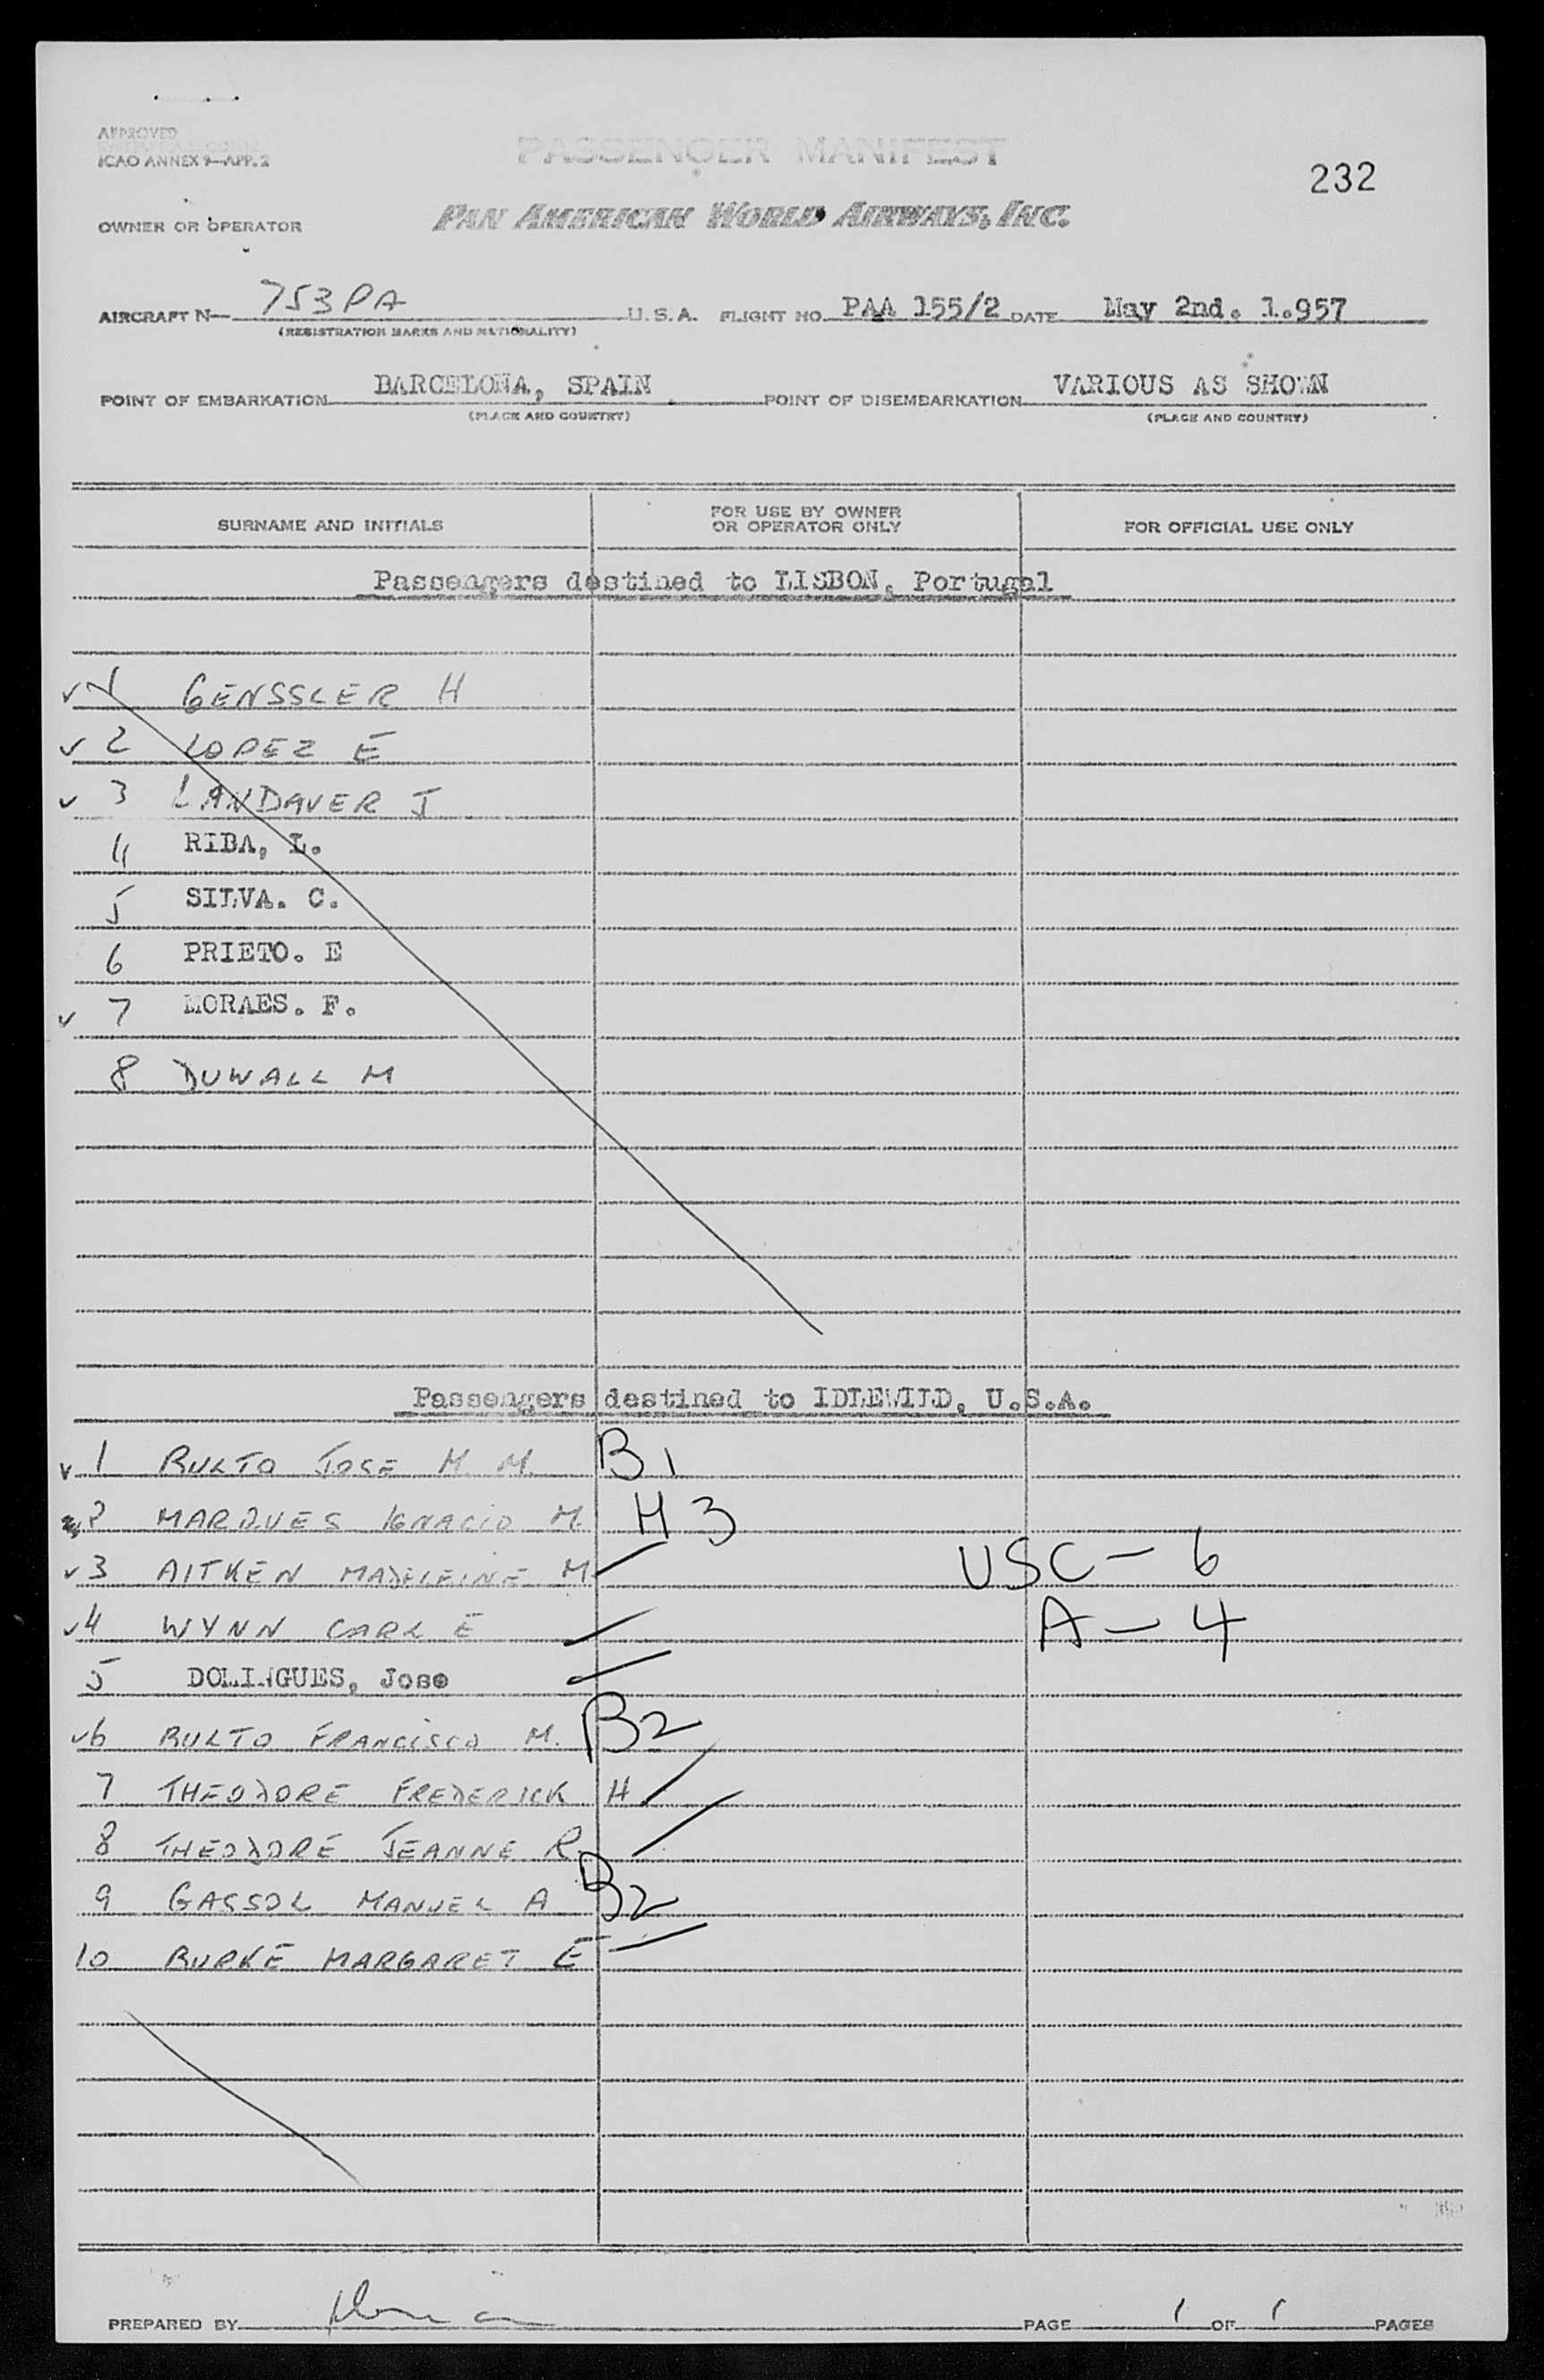 APPROVED
ICAO ANNEX 9—APP. 2
PASSENGER MANIFEST
232
OWNER OR OPERATOR
PAN AMERICAN WORLD AIRWAYS, INC.
AIRCRAFT N— 753PA U.S.A. FLIGHT NO. PAA 155/2 DATE May 2nd. 1.957
(REGISTRATION MARKS AND NATIONALITY)
POINT OF EMBARKATION BARCELONA, SPAIN POINT OF DISEMBARKATION VARIOUS AS SHOWN
(PLACE AND COUNTRY) (PLACE AND COUNTRY)
SURNAME AND INITIALS FOR USE BY OWNER OR OPERATOR ONLY FOR OFFICIAL USE ONLY
Passengers destined to LISBON, Portugal
1 GENSSLER H
2 LOPEZ E
3 LANDAUER J
4 RIBA, L.
5 SILVA. C.
6 PRIETO. E
7 MORAES. F.
8 DUWALL M
Passengers destined to IDLEWILD, U.S.A.
1 BULTO JOSE M. M. B1
2 MARQUES IGNACIO M. H3
3 AITKEN MADELEINE M USC — 6
4 WYNN CARL E A — 4
5 DOMINGUES, Jose
6 BULTO FRANCISCO M. B2
7 THEODORE FREDERICK H
8 THEODORE JEANNE R.
9 GASSOL MANUEL A B2
10 BURKE MARGARET E
PREPARED BY PAGE 1 OF 1 PAGES